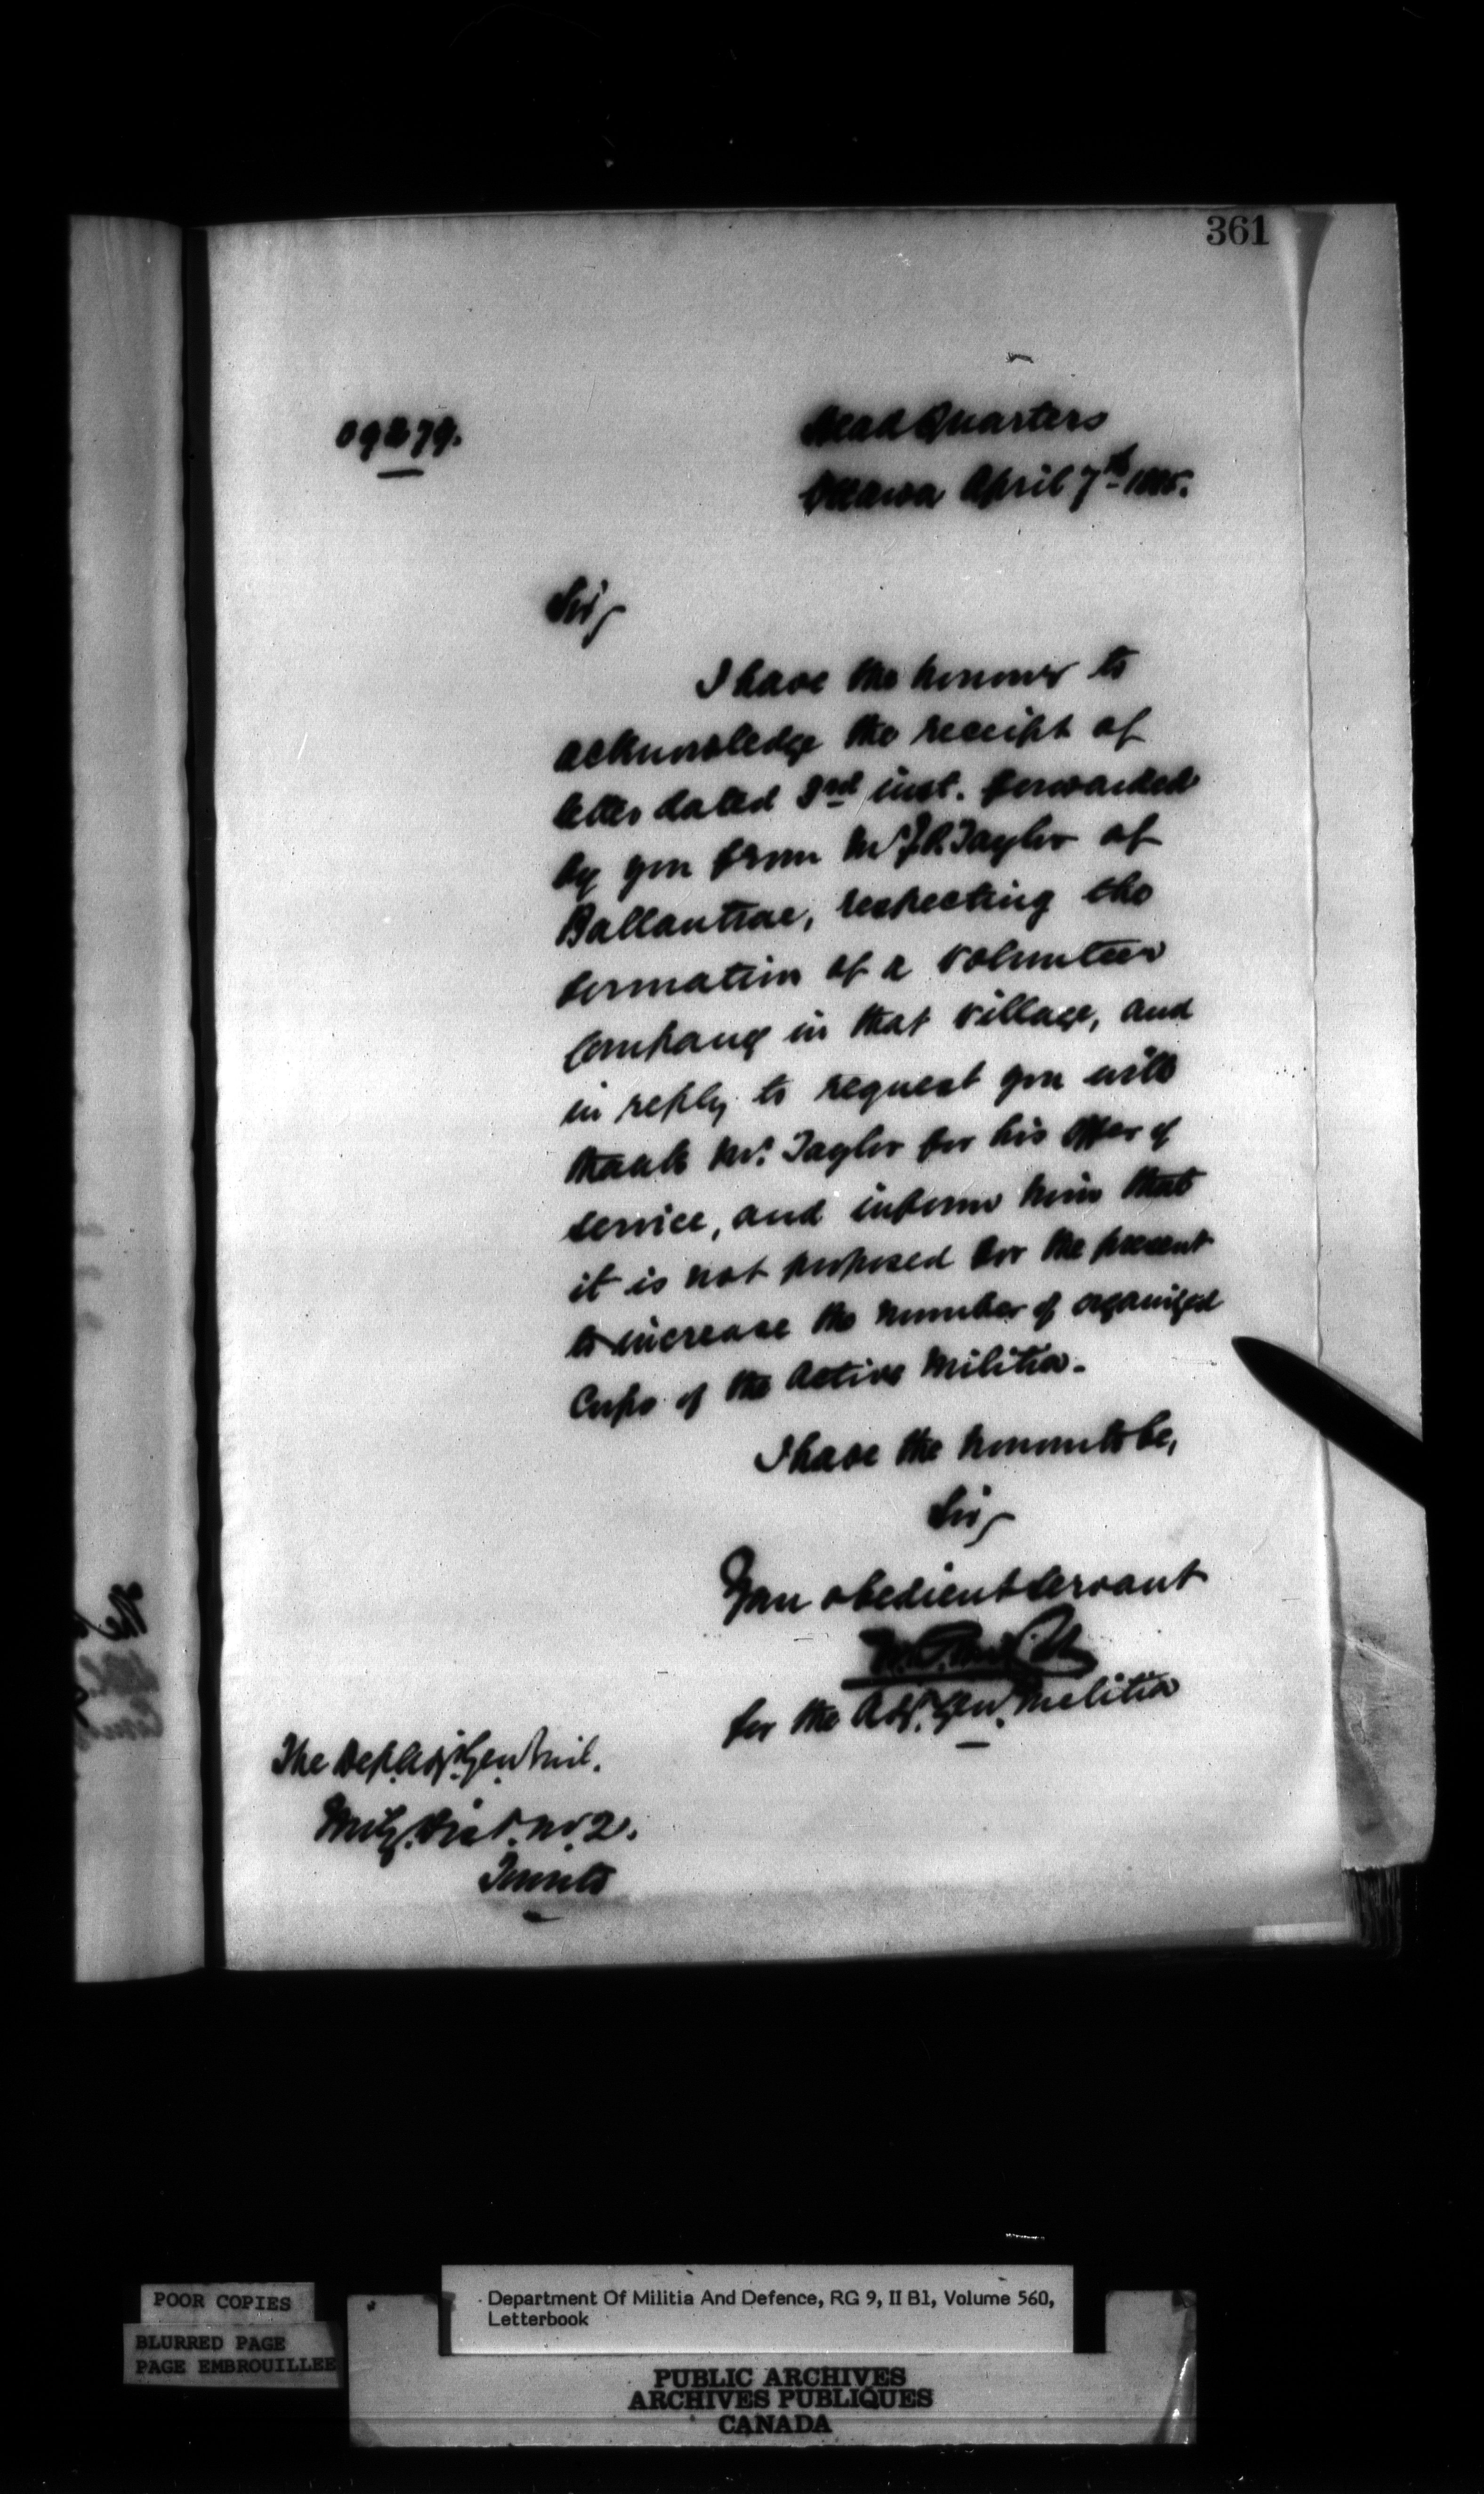 361
09279.
Head Quarters
Ottawa April 7th 1885.
Sir,
I have the honour to
acknowledge the receipt of
letter dated 3rd inst. forwarded
by you from Mr J.R. Taylor of
Ballantrae, respecting the
formation of a volunteer
Company in that village, and
in reply to request you will
thank Mr. Taylor for his offer of
service, and inform him that
it is not proposed for the present
to increase the number of organized
Corps of the Active Militia.
I have the honour to be,
Sir,
Your obedient servant
for the Adjt. Genl. Militia
The Dep. Adjt. Genl. Mil.
Mily. Dist. No. 2.
Toronto
POOR COPIES
BLURRED PAGE
PAGE EMBROUILLEE
Department Of Militia And Defence, RG 9, II B1, Volume 560,
Letterbook
PUBLIC ARCHIVES
ARCHIVES PUBLIQUES
CANADA